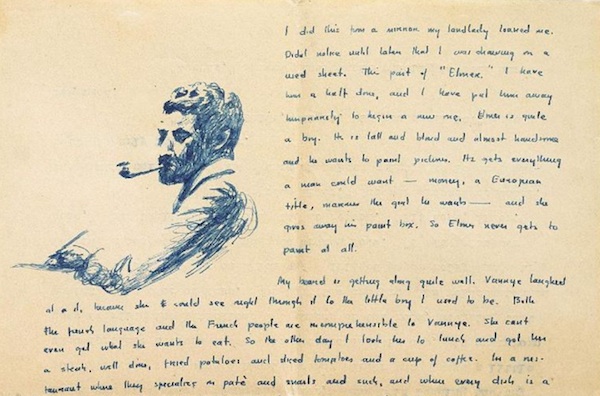 I did this from a mirror my landlady loaned me.
Didnt notice until later that I was drawing on a
used sheet. This part of "Elmer." I have
him a half done, and I have put him away
temporarily to begin a new one. Elmer is quite
a boy. He is tall and blond and almost handsome
and he wants to paint pictures. He gets everything
a man could want — money, a European
title, marries the girl he wants — and she
gives away his paint box. So Elmer never gets to
paint at all.
My beard is getting along quite well. Vannye laughed
at it, because she could see right through it to the little boy I used to be. Both
the french language and the French people are incomprehensible to Vannye. She cant
even get what she wants to eat. So the other day I took her to lunch and got her
a steak, well done, fried potatoes and sliced tomatoes and a cup of coffee. In a res-
taurant where they specialise in paté and snails and such, and where every dish is a